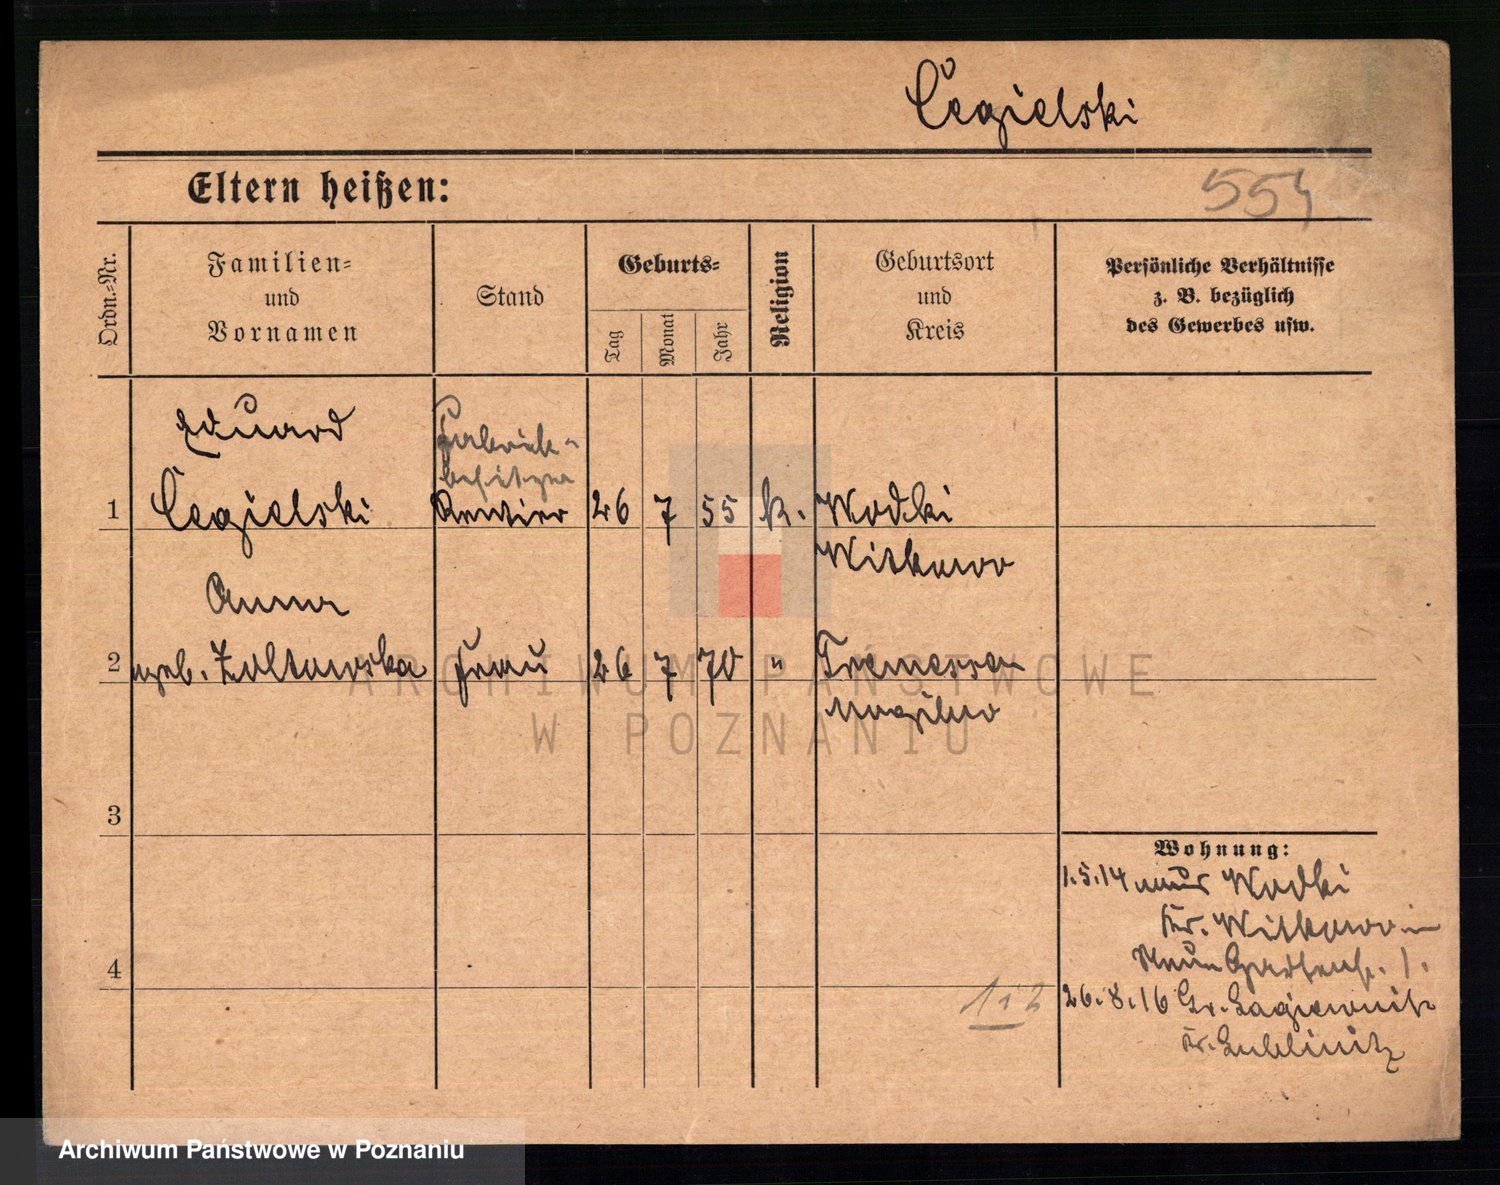 Cegielski
Eltern heißen:
554
Ordn.-Nr.
Familien-
und
Vornamen
Stand
Geburts-
Tag
Monat
Jahr
Religion
Geburtsort
und
Kreis
Persönliche Verhältnisse
z. B. bezüglich
des Gewerbes usw.
Eduard
Fabrik-
besitzer
1 Cegielski Rentier 26 7 55 k. Wodki
Witkowo
Anna
2 geb. Zoltowska Frau 26 7 70 " Tremessen
Mogilno
3
Wohnung:
1.5.14 nach Wodki
Kr. Witkowo
4
1 i 2
26.8.16 Gr. Lagiewnik
Kr. Lublinitz
ARCHIWUM PAŃSTWOWE
W POZNANIU
Archiwum Państwowe w Poznaniu